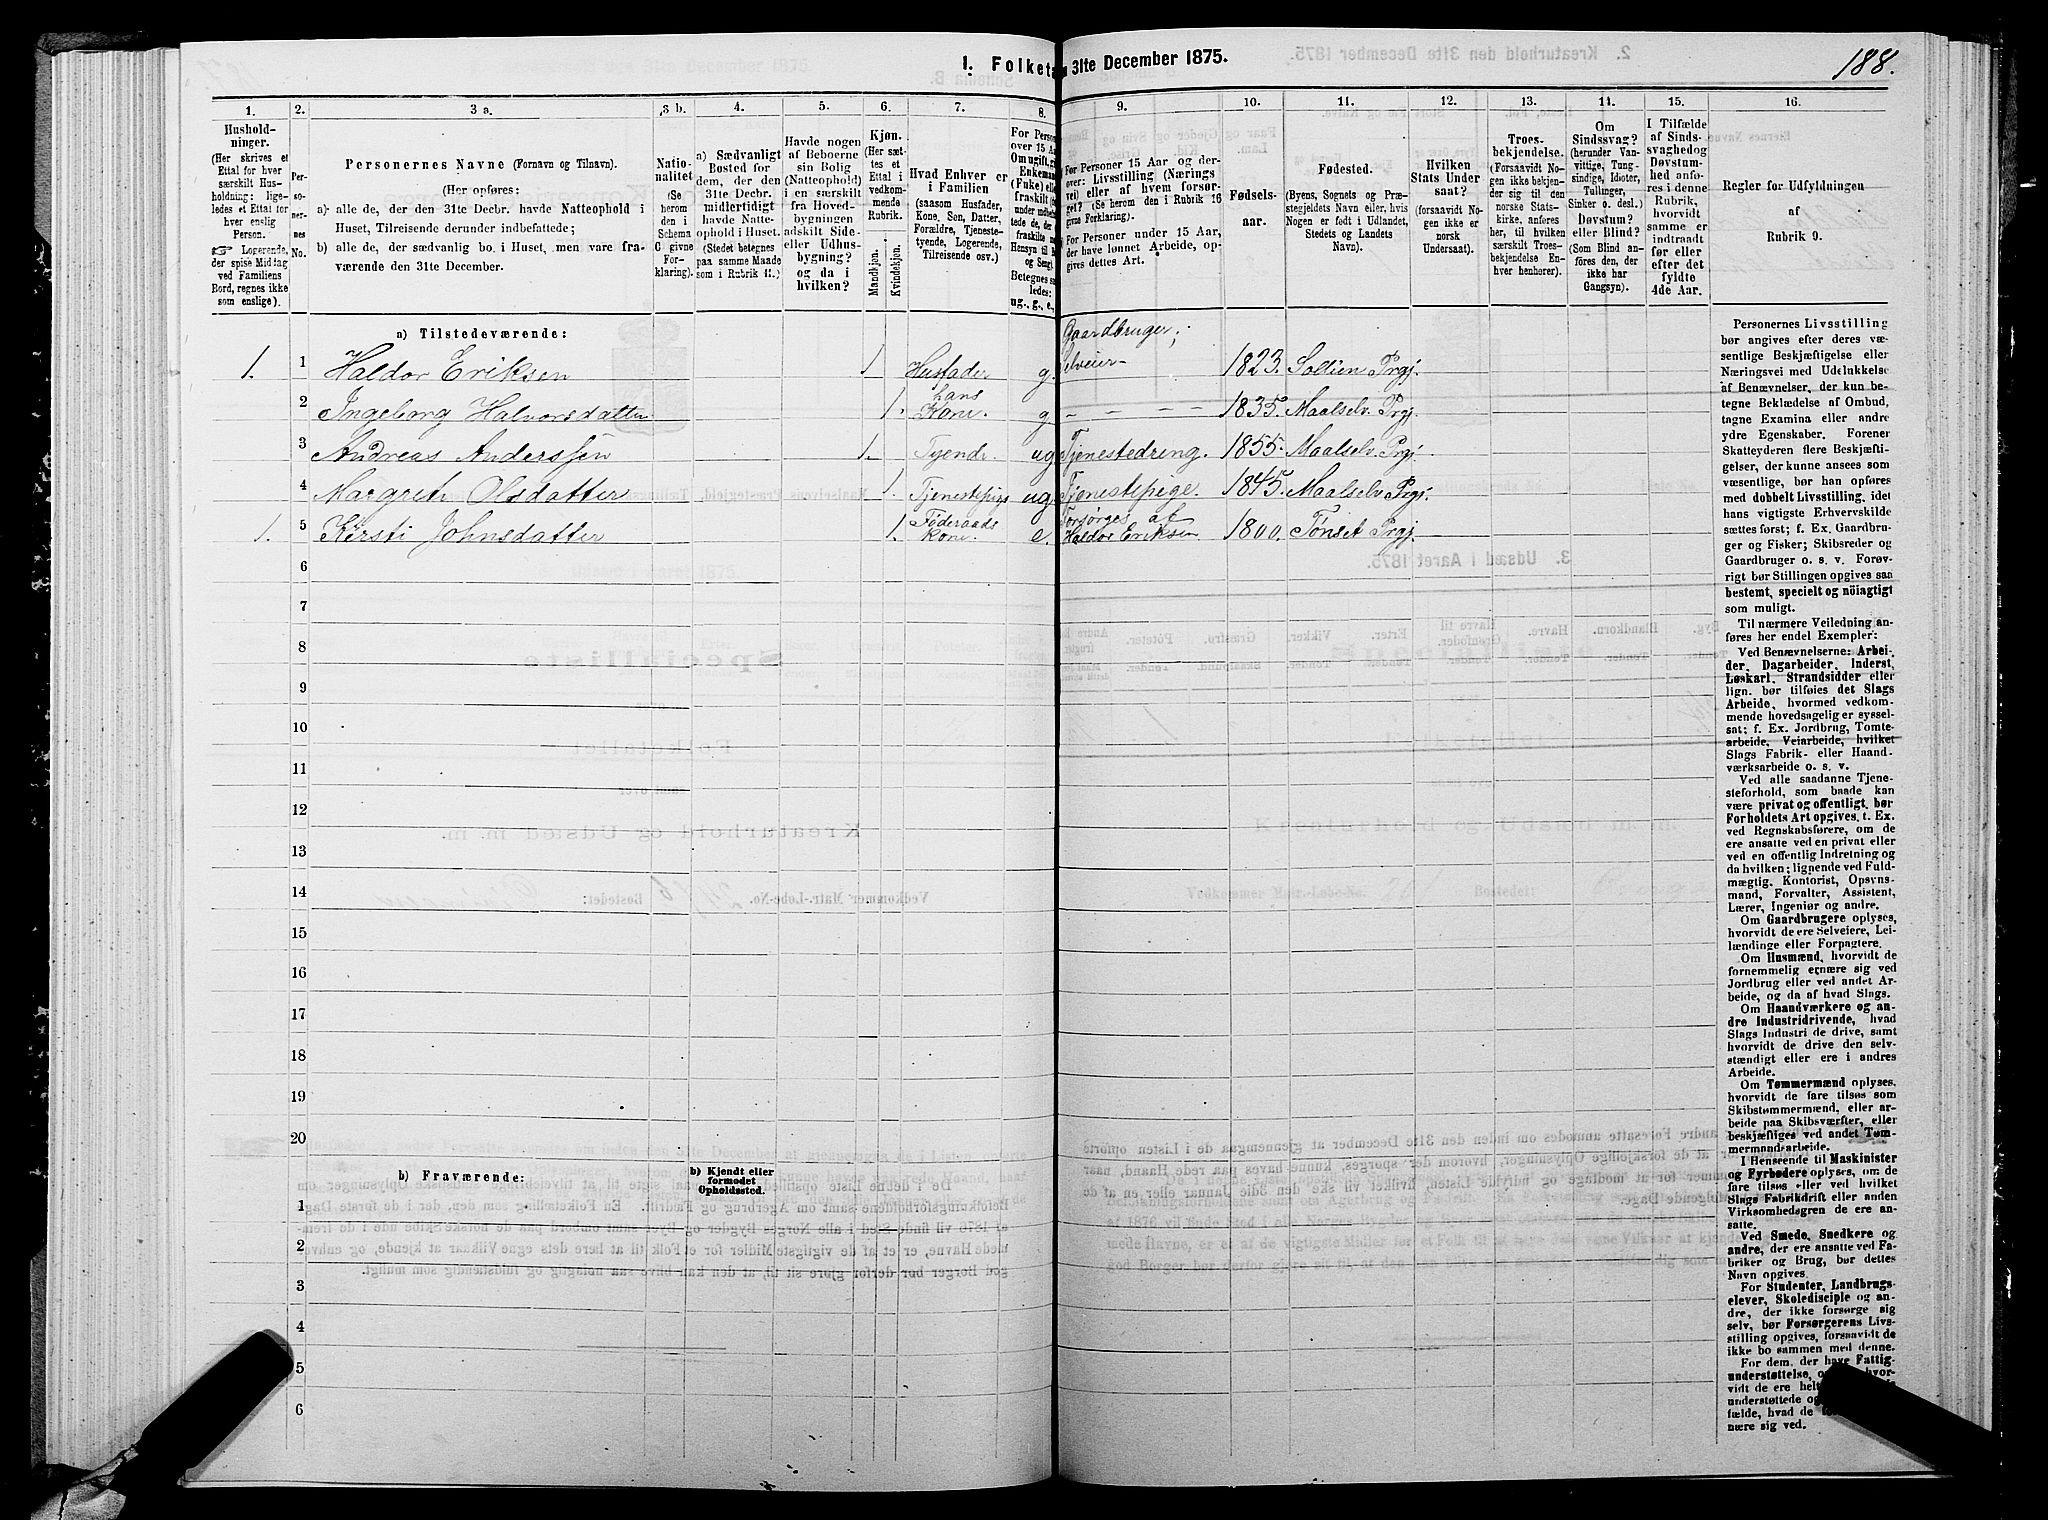 188.
1. Folketæ
31te December 1875.
1.
2.
3 a.
3 b.
4.
5.
6.
7.
8.
9.
10.
11.
12.
13.
14.
15.
16.
Hushold-
ninger.
(Her skrives et
Ettal for hver
særskilt Hus-
holdning; lige-
ledes et Ettal for
hver enslig
Person.
☞ Logerende,
der spise Middag
ved Familiens
Bord, regnes ikke
som enslige).
Per-
soner-
nes
No.
Personernes Navne (Fornavn og Tilnavn).
(Her opføres:
a) alle de, der den 31te Decbr. havde Natteophold i
Huset, Tilreisende derunder indbefattede;
b) alle de, der sædvanlig bo i Huset, men vare fra-
værende den 31te December.
Natio-
nalitet
(Se
herom
den i
Schema
C givne
For-
klaring).
a) Sædvanligt
Bosted for
dem, der den
31te Decbr.
midlertidigt
havde Natte-
ophold i Huset.
(Stedet betegnes
paa samme Maade
som i Rubrik 11.)
Havde nogen
af Beboerne
sin Bolig
(Natteophold)
i en særskilt
fra Hoved-
bygningen
adskilt Side-
eller Udhus-
bygning?
og da i
hvilken?
Kjøn.
(Her sæt-
tes et
Ettal i
vedkom-
mende
Rubrik.
Mandkjøn.
Kvindekjøn.
Hvad Enhver er
i Familien
(saasom Husfader,
Kone, Søn, Datter,
Forældre, Tjeneste-
tyende, Logerende,
Tilreisende osv.)
For Person
over 15 Aar
Om ugift, gi
Enkeman
(Fuke) elle
fraskilt
ug., g., e.,
For Personer 15 Aar og der-
over: Livsstilling (Nærings
vei) eller af hvem forsør-
get? (Se herom den i Rubrik 16
givne Forklaring).
For Personer under 15 Aar,
der have lønnet Arbeide, op-
gives dettes Art.
Fødsels-
aar.
Fødested.
(Byens, Sognets og Præ-
stegjeldets Navn eller, hvis
Nogen er født i Udlandet,
Stedets og Landets
Navn).
Hvilken
Stats Under
saat?
(forsaavidt No-
gen ikke er
norsk
Undersaat).
Troes-
bekjendelse.
(Forsaavidt No-
gen ikke bekjen-
der sig til den
norske Stats-
kirke, anføres
her, til hvilken
særskilt Troes-
bekjendelse En-
hver henhører).
Om
Sindssvag?
(herunder Van-
vittige, Tung-
sindige, Idioter,
Tullinger,
Sinker o. desl.)
Døvstum?
eller Blind?
(Som Blind an-
føres den, der
ikke har
Gangsyn).
I Tilfælde
af Sinds-
svaghed og
Døvstum-
hed anfø-
res i denne
Rubrik,
hvorvidt
samme er
indtraadt
før eller
efter det
fyldte
4de Aar.
Regler for Udfyldningen
af
Rubrik 9.
a) Tilstedeværende:
1. 1 Haldor Eriksen 1 Husfader g. Gaardbruger; Selveier 1823. Sollien Prgj.
2 Ingeborg Halvorsdatter 1. hans Kone. g – – – – 1835. Maalselv. Prgj.
3 Andreas Anderssen 1. Tyende ug Tjenestedreng. 1855. Maalselv. Prgj.
4 Margrete Olsdatter 1. Tjenestepige ug. Tjenestepige. 1845. Maalselv Prgj.
1. 5 Kirsti Johnsdatter 1. Føderaads kone. e. Forsørges af Haldor Eriksen 1800. Tønset Prgj.
6
7
8
9
10
11
12
13
14
15
16
17
18
19
20
b) Fraværende:
b) Kjendt eller
formodet
Opholdssted.
1
2
3
4
5
6
Personernes Livsstilling
bør angives efter deres væ-
sentlige Beskjæftigelse eller
Næringsvei med Udelukkelse
af Benævnelser, der kun be-
tegne Beklædelse af Ombud,
tagne Examina eller andre
ydre Egenskaber. Forener
Skatteyderen flere Beskjæfti-
gelser, der kunne ansees som
væsentlige, bør han opføres
med dobbelt Livsstilling, idet
hans vigtigste Erhvervskilde
sættes først; f. Ex. Gaardbru-
ger og Fisker; Skibsreder og
Gaardbruger o. s. v. Forøv-
rigt bør Stillingen opgives saa
bestemt, specielt og nöiagtigt
som muligt.
Til nærmere Veiledning an-
føres her endel Exempler:
Ved Benævnelserne: Arbei-
der, Dagarbeider, Inderst,
Løskarl, Strandsidder eller
lign. bør tilføies det Slags
Arbeide, hvormed vedkom-
mende hovedsagelig er syssel-
sat; f. Ex. Jordbrug, Tomte-
arbeide, Veiarbeide, hvilket
Slags Fabrik- eller Haand-
værksarbeide o. s. v.
Ved alle saadanne Tjene-
steforhold, som baade kan
være privat og offentligt, bør
Forholdets Art opgives, t. Ex.
ved Regnskabsførere, om de
ere ansatte ved en privat eller
ved en offentlig Indretning og
da hvilken; lignende ved Fuld-
mægtig, Kontorist, Opsyns-
mand, Forvalter, Assistent,
Lærer, Ingeniør og andre.
Om Gaardbrugere oplyses,
hvorvidt de ere Selveiere, Lei-
lændinge eller Forpagtere.
Om Husmænd, hvorvidt de
fornemmelig ernære sig ved
Jordbrug eller ved andet Ar-
beide, og da af hvad Slags.
Om Haandværkere og an-
dre Industridrivende, hvad
Slags Industri de drive, samt
hvorvidt de drive den selv-
stændigt eller ere i andres
Arbeide.
Om Tømmermænd oplyses,
hvorvidt de fare tilsøs som
Skibstømmermænd, eller ar-
beide paa Skibsværfter, eller
beskjæftiges ved andet Tøm-
mermandsarbeide.
I Henseende til Maskinister
og Fyrbødere oplyses, om de
fare tilsøs eller ved hvilket
Slags Fabrikdrift eller anden
Virksomhedsgren de ere an-
satte.
Ved Smede, Snedkere og
andre, der ere ansatte ved Fa-
briker og Brug, bør dettes
Navn opgives.
For Studenter, Landbrugs-
elever, Skoledisciple og an-
dre, der ikke forsørge sig
selv, bør Forsørgerens Livs-
stilling opgives, forsaavidt de
ikke bo sammen med denne.
For dem, der have Fattig-
understøttelse,
vidt de ere
understøttede
fælde, hvad de
nære sig ved.